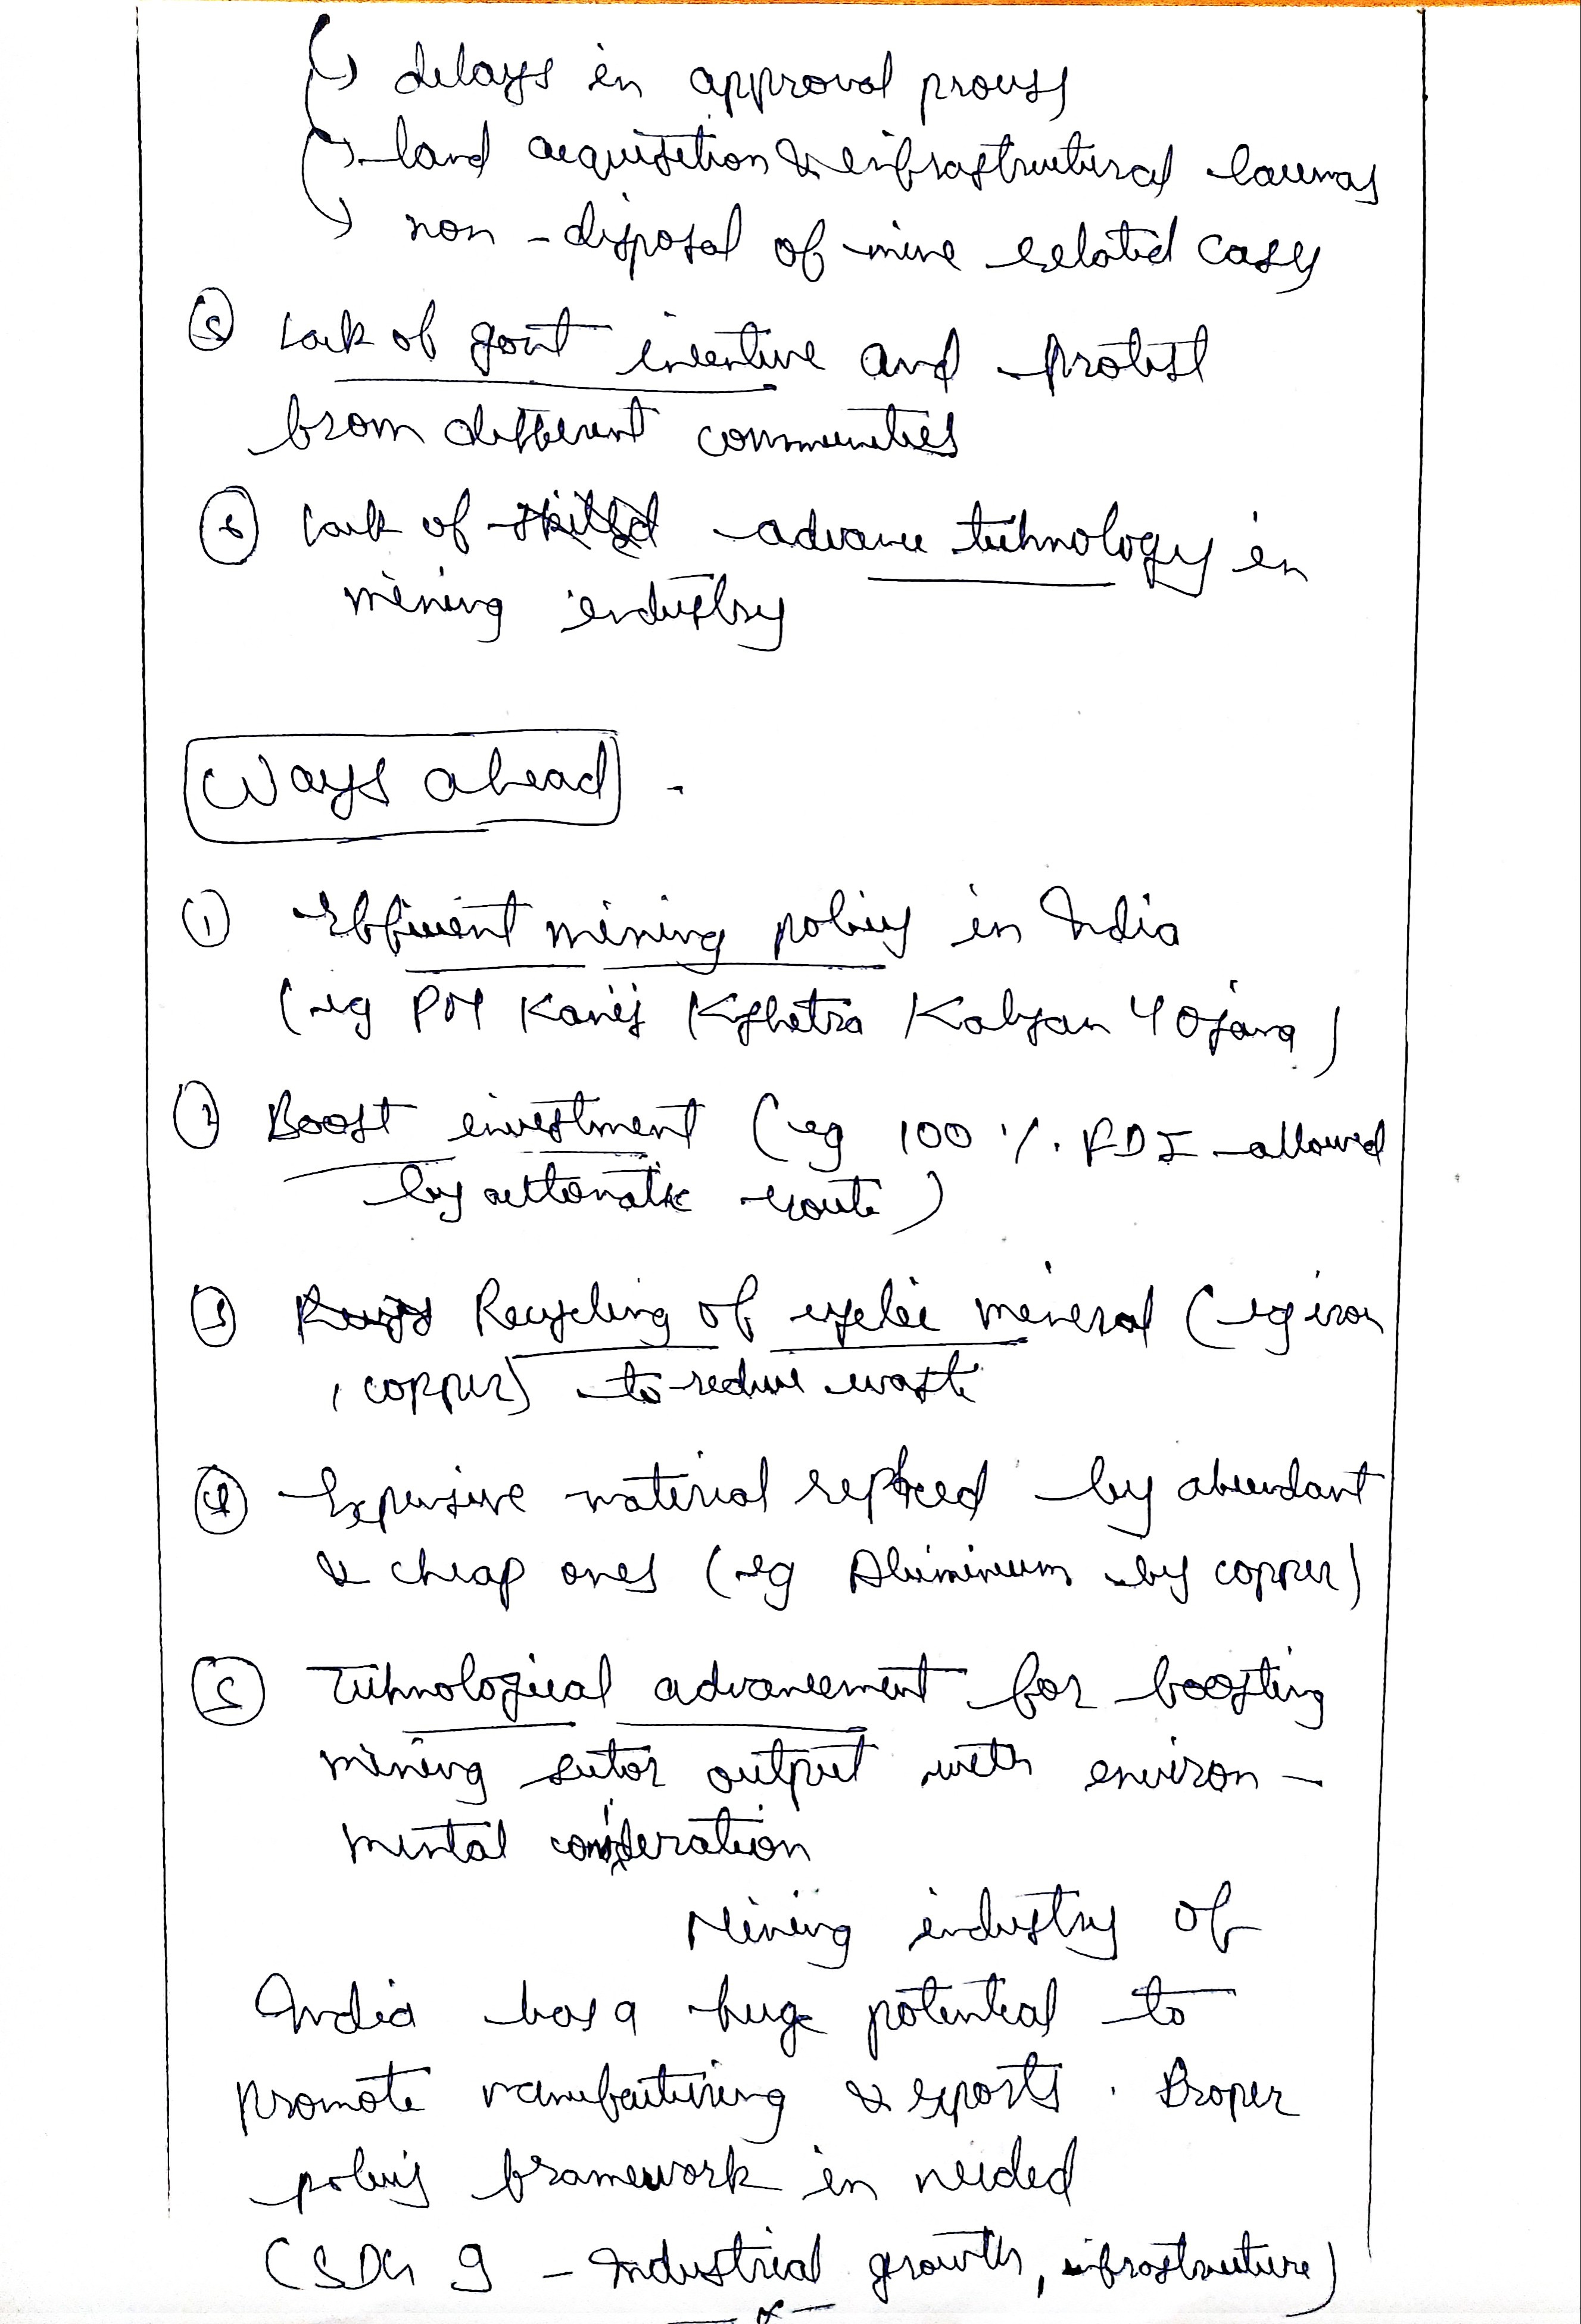 ↳ delays in approval process
↳ land acquisition & infrastructural lacunas
↳ non-disposal of mine related cases
⑤ Lack of govt incentive and protest
from different communities
⑥ Lack of advance technology in
mining industry
Ways ahead -
① Efficient mining policy in India
(eg PM Kanij Kshetra Kalyan Yojana)
② Boost investment (eg 100 % FDI allowed
by automatic route)
③ Recycling of mineral (eg iron
, copper) to reduce waste
④ Expensive material replaced by abundant
& cheap ones (eg Aluminium by copper)
⑤ Technological advancement for boosting
mining sector output with environ -
mental consideration
Mining industry of
India has a huge potential to
promote manufacturing & exports . Proper
policy framework in needed
(SDG 9 - Industrial growth, infrastructure)
— x —